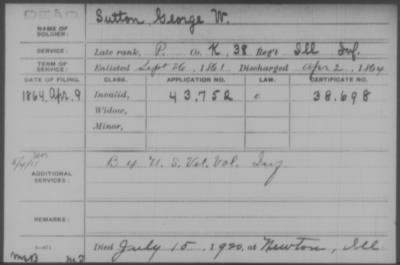 DEAD
NAME OF SOLDIER: Sutton, George W.
SERVICE: Late rank, P. Co. K, 38 Reg't Ill Inf.
TERM OF SERVICE: Enlisted Sept 26, 1861 Discharged Apr 2, 1864
DATE OF FILING. CLASS. APPLICATION NO. LAW. CERTIFICATE NO.
1864, Apr. 9 Invalid, 43.752 c 38.698
Widow,
Minor,
ADDITIONAL SERVICES: B 4 U.S. Vet. Vol. Inf.
REMARKS:
Died July 15, 1920, at Newton, Ill.